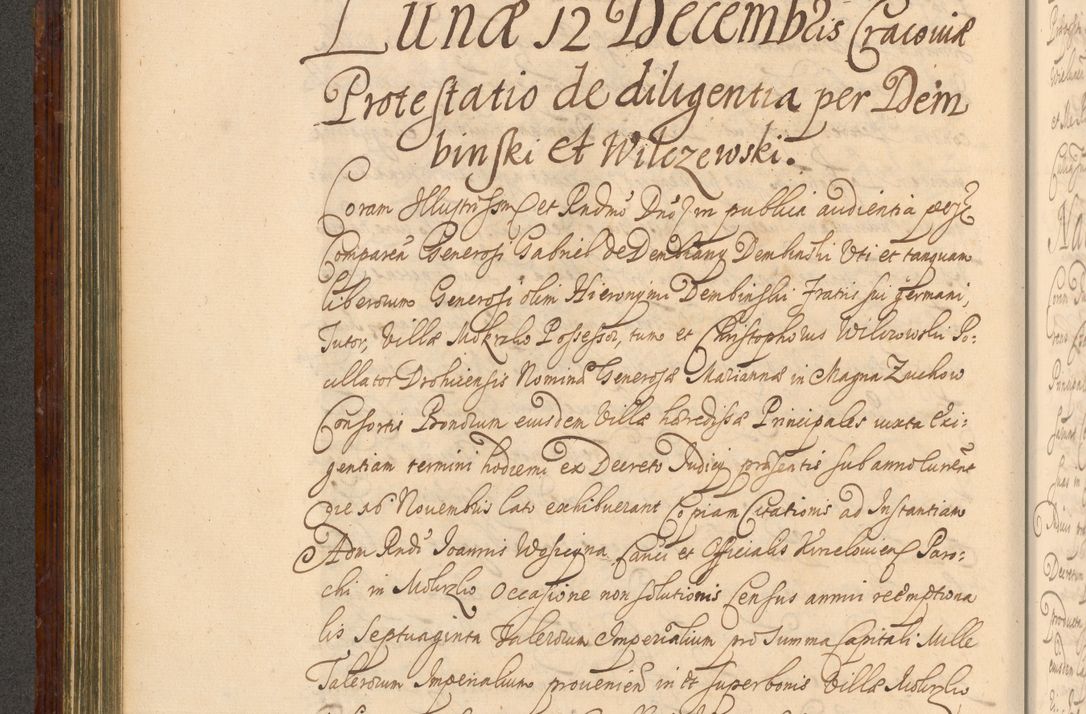 Lunæ 12 Decembris Cracoviæ
Protestatio de diligentia per Dem
binski et Wilczewski.
Coram Illustrissmo et Rndmo Dno in publica audientia
Comparen Generosi Gabriel de Dembiany Dembinski Uti et tanquam
liberorum Generosi olim Hieronymi Dembinski Fratris sui germani,
Tutor, Villæ Mokrzko Possessor, tum et Christophorus Wilczowski Po-
cillator Drohicensis Nomine Generosæ Mariannæ in Magna Zuchow
Consortis Bonorum eiusdem Villæ hæredissæ Principales iuxta Exi-
gentiam termini hodierni ex Decreto Iudicij præsentis sub anno curent
die 16 Novembris lato exhibuerant Copiam Citationis ad Instantiam
Adm Rndi Joannis Canci et Officialis Paro-
chi in Mokrzko Occasione non solutionis Census annui reemptiona
lis Septuaginta Talerorum Imperialium pro Summa Capitali Mille
Talerorum Imperialium provenien in et super bonis Villæ Mokrzko